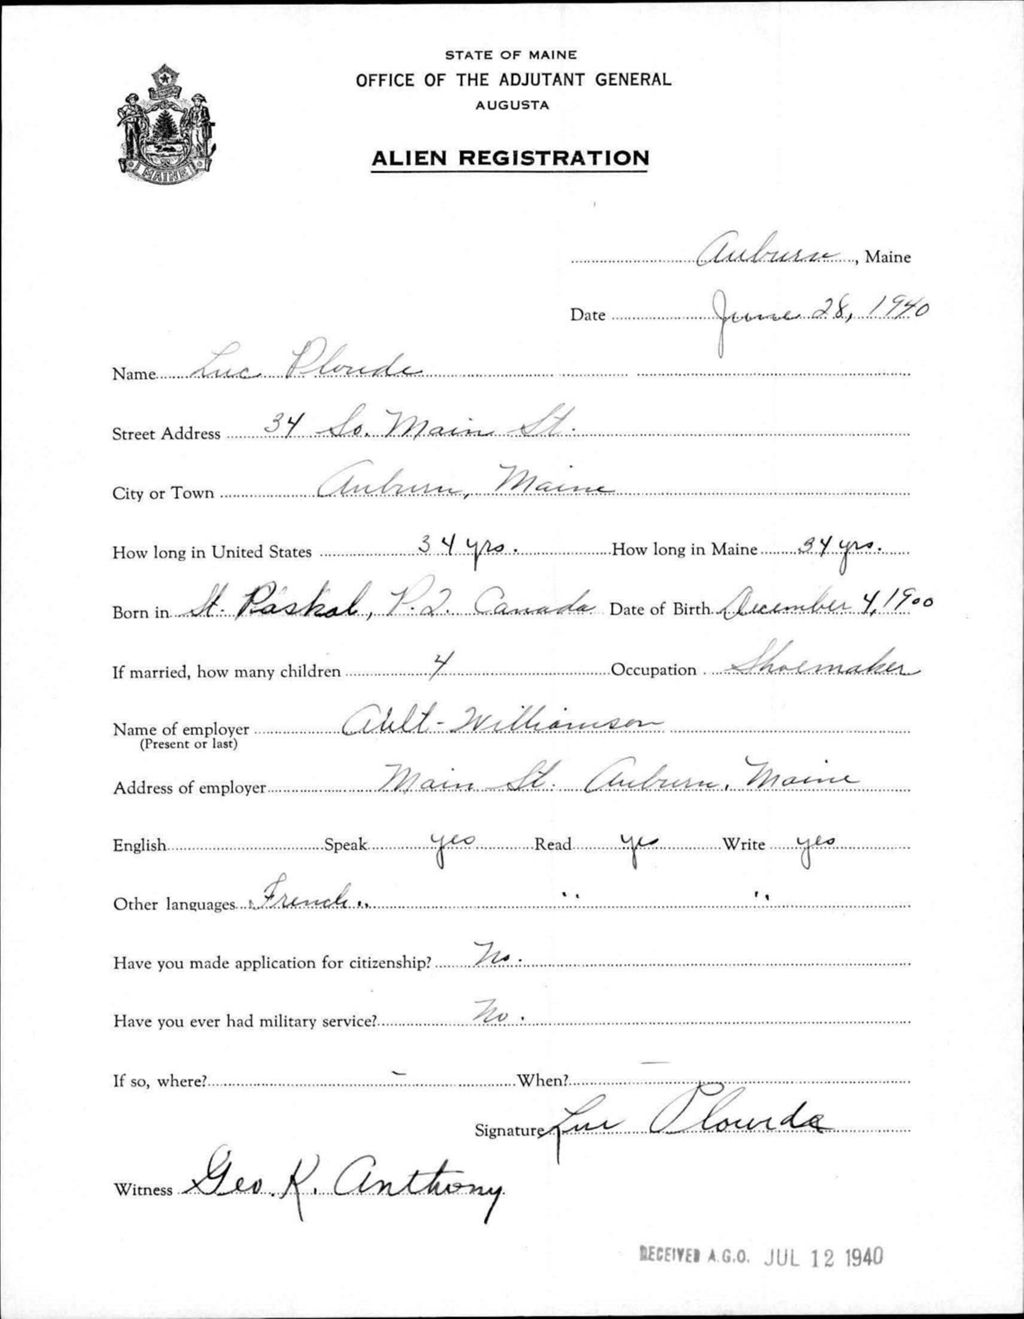 STATE OF MAINE
OFFICE OF THE ADJUTANT GENERAL
AUGUSTA
ALIEN REGISTRATION
MAINE
Auburn, Maine
Date June 28, 1940
Name Luc Plourde
Street Address 34 So. Main St.
City or Town Auburn, Maine
How long in United States 34 yrs. How long in Maine 34 yrs.
Born in St. Paskal, P.Q. Canada Date of Birth December 4, 1900
If married, how many children 4 Occupation Shoemaker
Name of employer Ault-Williamson
(Present or last)
Address of employer Main St. Auburn, Maine
English Speak yes Read yes Write yes
Other languages French " " "
Have you made application for citizenship? No.
Have you ever had military service? No.
If so, where? - When? -
Signature Luc Plourde
Witness Geo. K. Anthony
RECEIVED A.G.O. JUL 12 1940